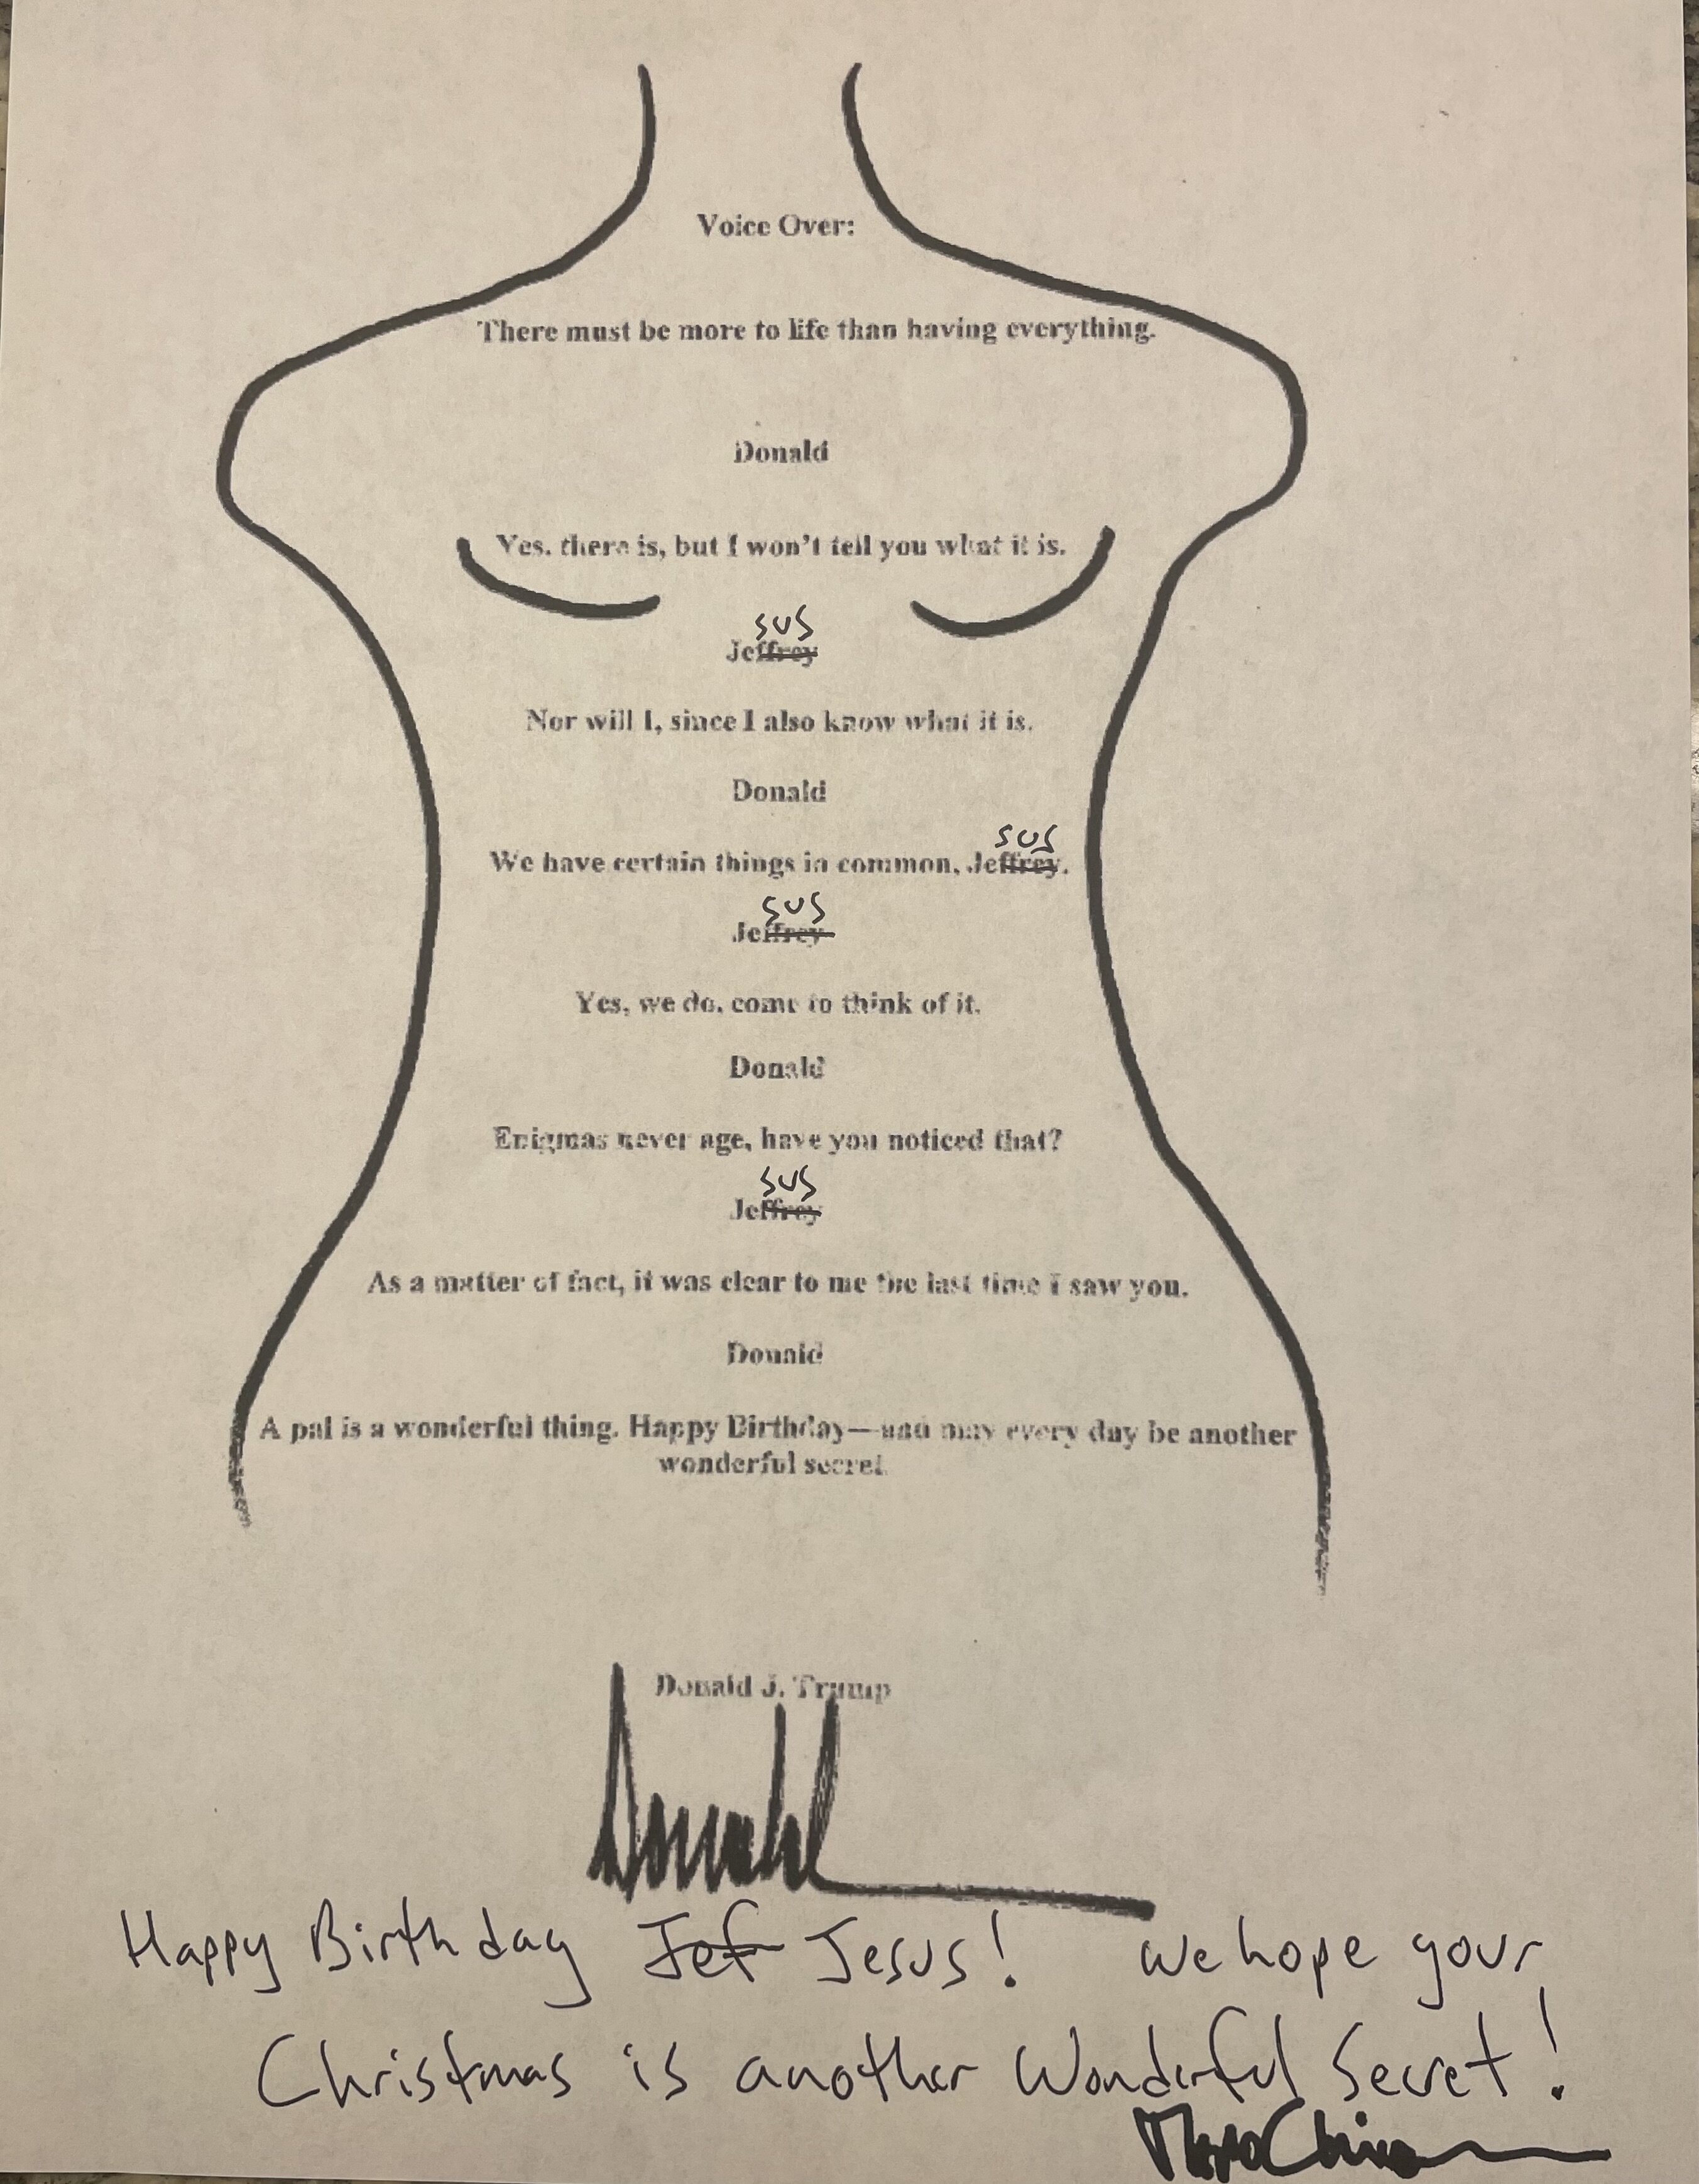 Voice Over:
There must be more to life than having everything.
Donald
Yes, there is, but I won't tell you what it is.
sus
Jeffrey
Nor will I, since I also know what it is.
Donald
sus
We have certain things in common, Jeffrey.
sus
Jeffrey
Yes, we do, come to think of it.
Donald
Enigmas never age, have you noticed that?
sus
Jeffrey
As a matter of fact, it was clear to me the last time I saw you.
Donald
A pal is a wonderful thing. Happy Birthday—and may every day be another
wonderful secret.
Donald J. Trump
Donald
Happy Birthday Jef Jesus! We hope your
Christmas is another Wonderful Secret!